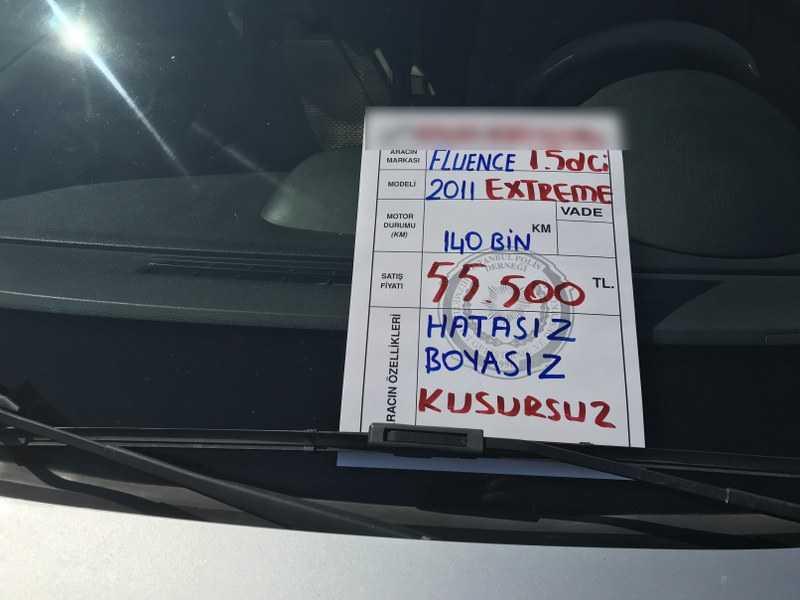 ARACIN MARKASI FLUENCE 1.5dCi
MODELİ 2011 EXTREME
MOTOR DURUMU (KM) 140 BİN KM VADE
SATIŞ FİYATI 55.500 TL.
HATASIZ
BOYASIZ
KUSURSUZ
ARACIN ÖZELLİKLERİ